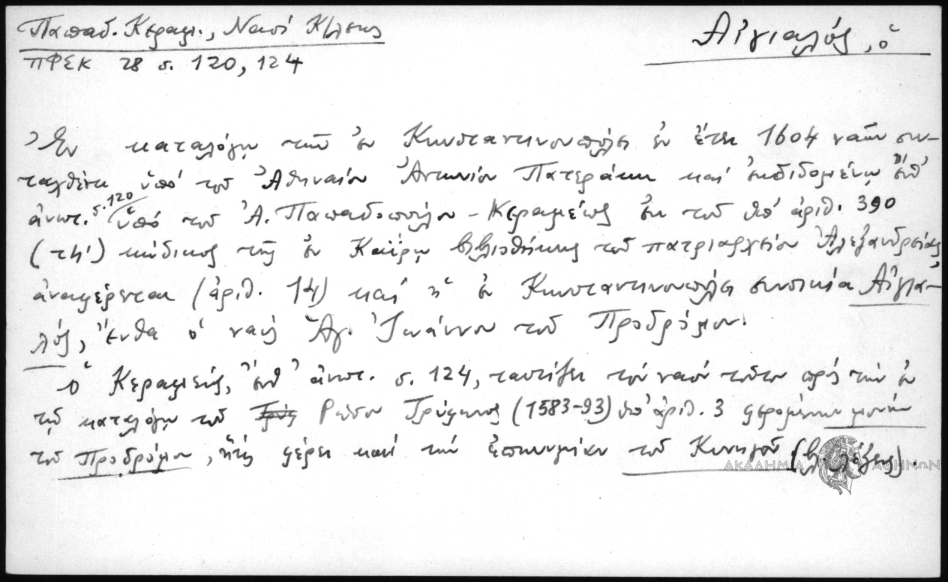 Παπαδ. Κεραμ., Ναοί Κ/λεως
ΠΦΣΚ 28 σ. 120, 124
Αἰγιαλός, ὁ
Ἐν καταλόγῳ τῶν ἐν Κωνσταντινουπόλει ἐν ἔτει 1604 ναῶν συν-
ταχθέντι ὑπό τοῦ Ἀθηναίου Ἀντωνίου Πατεράκη καί ἐκδιδομένῳ ἐνθ'
ἀνωτ. σ. 120 ὑπό τοῦ Ἀ. Παπαδοπούλου-Κεραμέως ἐκ τοῦ ὑπ' ἀριθ. 390
(τη') κώδικος τῆς ἐν Καΐρῳ βιβλιοθήκης τοῦ πατριαρχείου Ἀλεξανδρείας
ἀναφέρεται (ἀριθ. 14) καί ἡ ἐν Κωνσταντινουπόλει συνοικία Αἰγια-
λός, ἔνθα ὁ ναός Ἁγ. Ἰωάννου τοῦ Προδρόμου.
Ὁ Κεραμεύς, ἐνθ' ἀνωτ. σ. 124, ταυτίζει τόν ναόν τοῦτον πρός τήν ἐν
τῷ καταλόγῳ τοῦ Ρώσου Τρύφωνος (1583-93) ὑπ' ἀριθ. 3 φερομένην μονήν
τοῦ Προδρόμου, ἥτις φέρει καί τήν ἐπωνυμίαν τοῦ Κυνηγοῦ (βλ. λέξεις).
ΑΚΑΔΗΜΙΑ ΑΘΗΝΩΝ